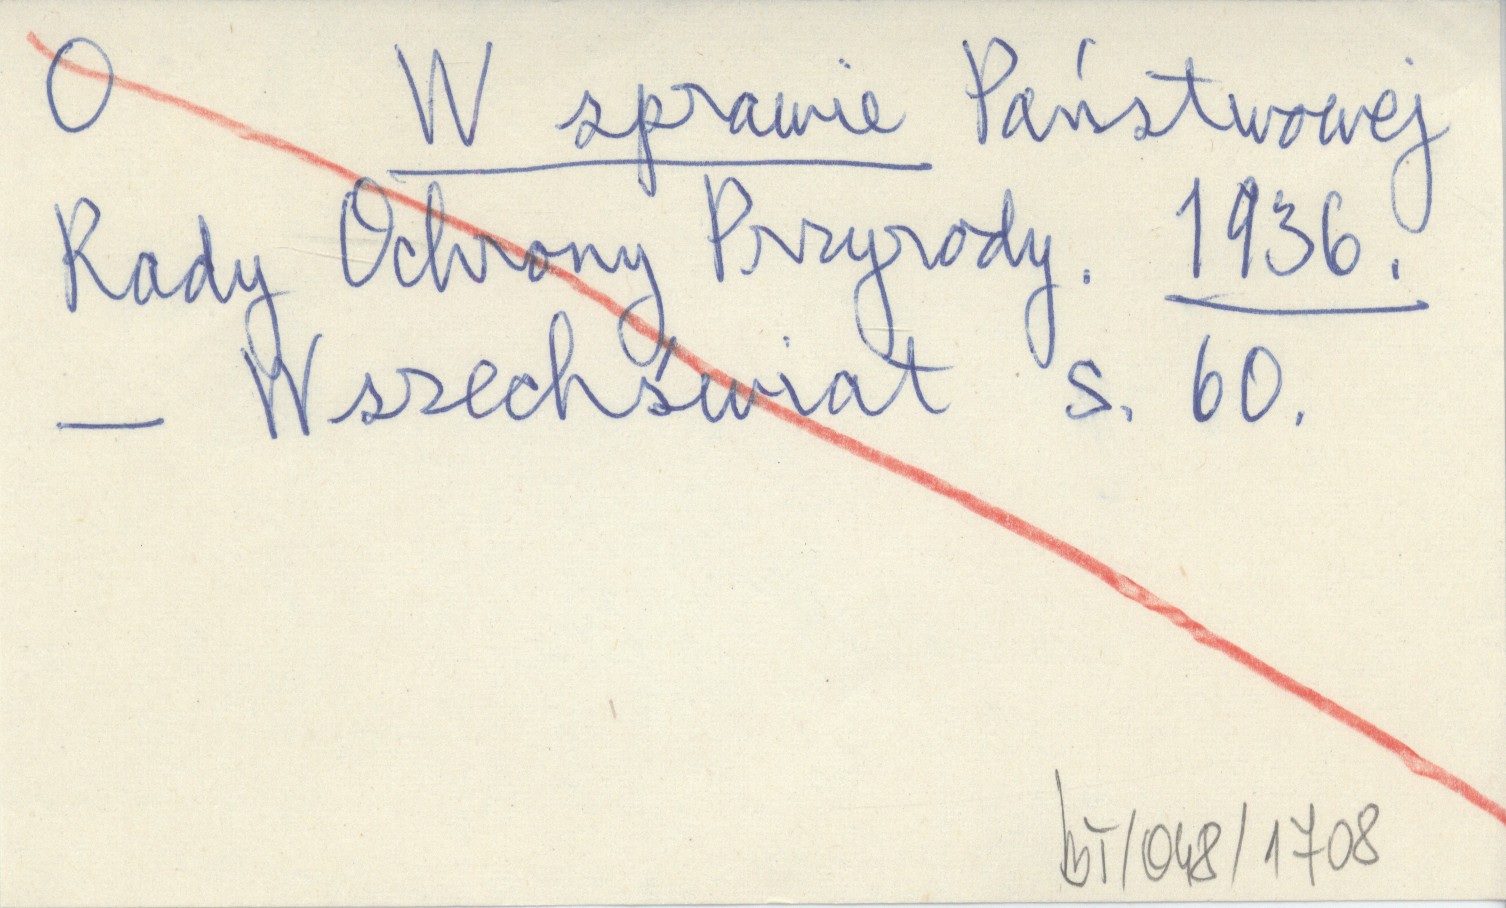 O W sprawie Państwowej
Rady Ochrony Przyrody. 1936.
— Wszechświat s. 60.
bT/048/1708